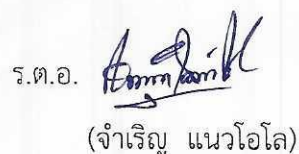 ร.ต.อ.
(จำเริญ แนวโอโล)